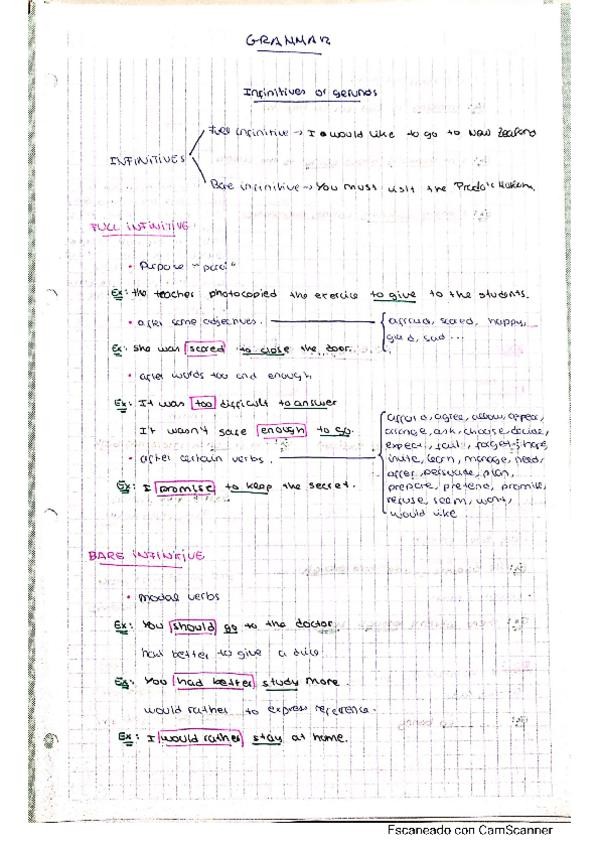 GRAMMAR
Infinitives or gerunds
INFINITIVES
Full infinitive → I would like to go to New Zealand
Bare infinitive → You must visit the Prado's Museum.
FULL INFINITIVE
• Purpose "para"
Ex: the teacher photocopied the exercise to give to the students.
• after some adjectives.
afraid, scared, happy,
glad, sad ...
Ex: She was scared to close the door.
• after words too and enough.
Ex: It was too difficult to answer
It wasn't safe enough to go.
• after certain verbs.
afford, agree, allow, appear,
arrange, ask, choose, decide,
expect, fail, forget, hope,
invite, learn, manage, need,
offer, persuade, plan,
prepare, pretend, promise,
refuse, seem, want,
would like
Ex: I promise to keep the secret.
BARE INFINITIVE
• modal verbs
Ex: You should go to the doctor.
had better to give a
Ex: You had better study more.
would rather to express
Ex: I would rather stay at home.
Escaneado con CamScanner